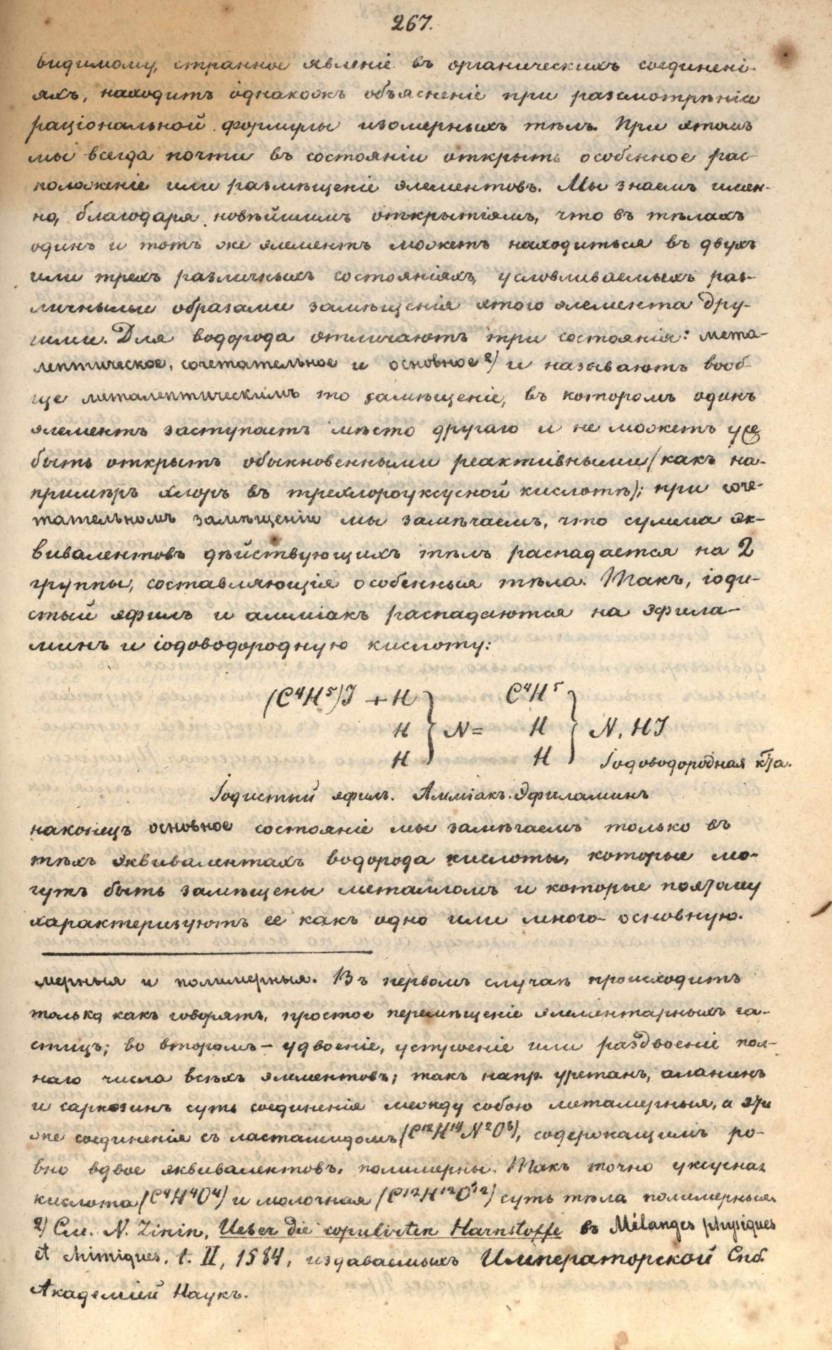 267.
видимому, странное явленіе въ органическихъ соединені-
яхъ, находитъ однакожъ объясненіе при разсмотрѣніи
раціональной формулы изомерныхъ тѣлъ. При этомъ
мы всегда почти въ состояніи открыть особенное рас-
положеніе или размѣщеніе элементовъ. Мы знаемъ имен-
но, благодаря новѣйшимъ открытіямъ, что въ тѣлахъ
одинъ и тотъ же элементъ можетъ находиться въ двухъ
или трехъ различныхъ состояніяхъ, условливаемыхъ раз-
личными образами замѣщенія этого элемента дру-
гими. Для водорода отличаютъ три состоянія: мета-
лептическое, сочетательное и основное 2) и называютъ вооб-
ще металептическимъ то замѣщеніе, въ которомъ одинъ
элементъ заступаетъ мѣсто другаго и не можетъ уже
быть открытъ обыкновенными реактивными (какъ на-
примѣръ хлоръ въ трехлороуксусной кислотѣ); при соче-
тательномъ замѣщеніи мы замѣчаемъ, что сумма эк-
вивалентовъ дѣйствующихъ тѣлъ распадается на 2
группы, составляющія особенныя тѣла. Такъ, іоди-
стый эфилъ и амміакъ распадаются на эфила-
минъ и іодоводородную кислоту:
(C⁴H⁵)J + H C⁴H⁵
H } N = H } N, HJ
H H Іодоводородная к-та.
Іодистый эфилъ. Амміакъ. Эфиламинъ
наконецъ основное состояніе мы замѣчаемъ только въ
тѣхъ эквивалентахъ водорода кислоты, которые мо-
гутъ быть замѣщены металломъ и которые поэтому
характеризуютъ ее какъ одно или много-основную.
мерныя и полимерныя. Въ первомъ случаѣ происходитъ
только, какъ говорятъ, простое перемѣщеніе элементарныхъ ча-
стицъ; во второмъ – удвоеніе, устроеніе или раздвоеніе пол-
наго числа всѣхъ элементовъ; такъ напр. уретанъ, аланинъ
и саркозинъ суть соединенія между собою метамерныя, а эти
же соединенія съ ластамидомъ (C¹²H¹⁴N²O⁸), содержащимъ ро-
вно вдвое эквивалентовъ, полимерны. Такъ точно уксусная
кислота (C⁴H⁴O⁴) и молочная (C¹²H¹²O¹²) суть тѣла полимерныя.
2) См. N. Zinin, Ueber die copulirten Harnstoffe въ Mélanges physiques
et chimiques, t. II, 1584, издаваемыхъ Императорской Спб.
Академіи Наукъ.